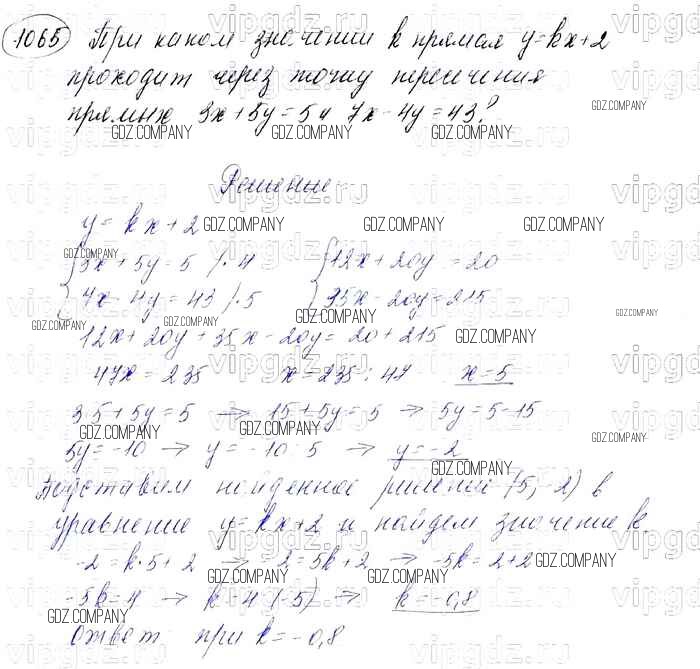 1065 При каком значении k прямая y=kx+2
проходит через точку пересечения
прямых 3x+5y=5 и 7x-4y=43?
Решение:
y=kx+2
3x+5y=5 /·4 12x+20y=20
7x-4y=43 /·5 35x-20y=215
12x+20y+35x-20y=20+215
47x=235 x=235:47 x=5
3·5+5y=5 → 15+5y=5 → 5y=5-15
5y=-10 → y=-10:5 → y=-2
Подставим найденное решение (5;-2) в
уравнение y=kx+2 и найдем значение k.
-2=k·5+2 → -2=5k+2 → -5k=2+2
-5k=4 → k=4:(-5) → k=-0,8
Ответ: при k=-0,8
GDZ.COMPANY
vipgdz.ru